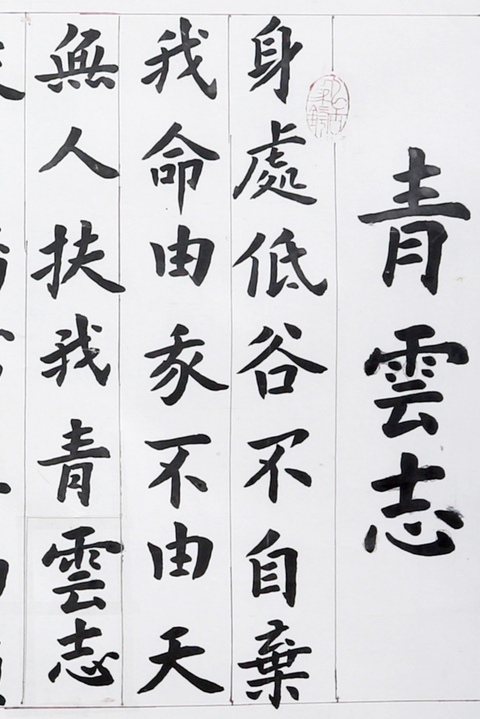 青雲志
身處低谷不自棄
我命由我不由天
無人扶我青雲志